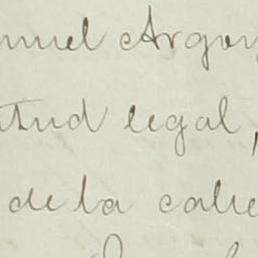 nuel Argom
titud legal,
de la calle